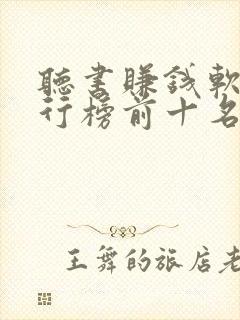 聽書賺錢軟
行榜前十名
王舞的旅店老